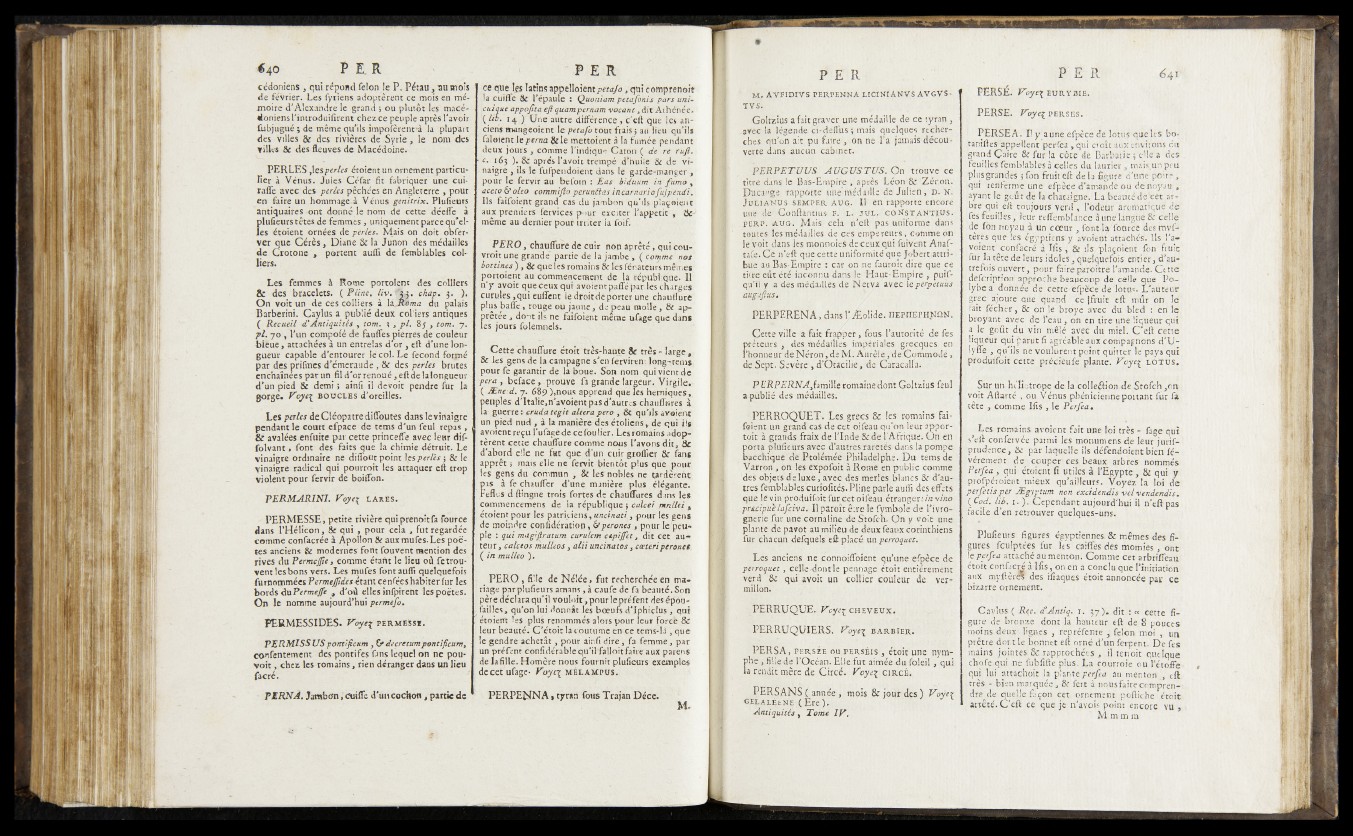 640 P E R P E R
cédoniens, qui répond ſelon le P. Pétau, au mois
de février. Les ſyriens adoptèrent ce mois en mé-
moire d'Alexandre le grand ; ou plutôt les macé-
doniens l'introduiſirent chez ce peuple après l'avoir
ſubjugué ; de même qu'ils impoſèrent à la plupart
des villes & des rivières de Syrie, le nom des
villes & des fleuves de Macédoine.
PERLES, les perles étoient un ornement particu-
lier à Vénus. Jules Céſar fit fabriquer une cui-
raſſe avec des perles pêchées en Angleterre, pour
en faire un hommage à Vénus genitrix. Pluſieurs
antiquaires ont donné le nom de cette déeſſe à
pluſieurs têtes de femmes, uniquement parce qu'el-
les étoient ornées de perles. Mais on doit obſer-
ver que Cérès, Diane & la Junon des médailles
de Crotone, portent auſſi de ſemblables col-
liers.
Les femmes à Rome portoient des colliers
& des bracelets. ( Pline, liv. 33. chap. 3. ).
On voit un de ces colliers à la Rome du palais
Barberini. Caylus a publié deux colliers antiques
( Recueil d'Antiquités, tom. 1, pl. 85, tom. 7.
pl. 70, l'un compoſé de fauſſes pierres de couleur
bleue, attachées à un entrelas d'or, eſt d'une lon-
gueur capable d'entourer le col. Le ſecond formé
par des priſmes d'émeraude, & des perles brutes
enchaînées par un fil d'or renoué, eſt de la longueur
d'un pied & demi ; ainſi il devoit pendre ſur la
gorge. Voyez BOUCLES d'oreilles.
Les perles de Cléopatre diſſoutes dans le vinaigre
pendant le court eſpace de tems d'un ſeul repas,
& avalées enſuite par cette princeſſe avec leur diſ-
ſolvant, ſont des faits que la chimie détruit. Le
vinaigre ordinaire ne diſſout point les perles ; & le
vinaigre radical qui pourroit les attaquer eſt trop
violent pour ſervir de boiſſon.
PERMARINI. Voyez LARES.
PERMESSE, petite rivière qui prenoit ſa ſource
dans l'Hélicon, & qui, pour cela, fut regardée
comme conſacrée à Apollon & aux muſes. Les poë-
tes anciens & modernes font ſouvent mention des
rives du Permeſſe, comme étant le lieu où ſe trou-
vent les bons vers. Les muſes ſont auſſi quelquefois
ſurnommées Permeſſides étant cenſées habiter ſur les
bords du Permeſſe, d'où elles inſpirent les poëtes.
On le nomme aujourd'hui permeſo.
PERMESSIDES. Voyez PERMESSE.
PERMISSUS pontificum, & decretum pontificum,
conſentement des pontifes ſans lequel on ne pou-
voit, chez les romains, rien déranger dans un lieu
ſacré.
PERNA. Jambon, cuiſſe d'un cochon, partie de
ce que les latins appelloient petaſo, qui comprenoit
la cuiſſe & l'épaule : Quoniam petaſonis pars uni-
cuique appoſita eſt quam pernam vocant, dit Athénée.
( lib. 14 ) Une autre différence, c'eſt que les an-
ciens mangeoient le petaſo tout frais ; au lieu qu'ils
ſaloient le perna & le mettoient à la fumée pendant
deux jours, comme l'indique Caton ( de re ruſt.
c. 163 ). & après l'avoir trempé d'huile & de vi-
naigre, ils le ſuſpendoient dans le garde-manger,
pour le ſervir au beſoin : Eas biduum in fumo,
aceto & oleo commiſto perunctas in carnario ſuſpendi.
Ils faiſoient grand cas du jambon qu'ils plaçoient
aux premiers ſervices pour exciter l'appetit, &
même au dernier pour irriter la ſoif.
PERO, chauſſure de cuir non aprêté, qui cou-
vroit une grande partie de la jambe, ( comme nos
bottines ), & que les romains & les ſénateurs mêmes
portoient au commencement de la république. Il
n'y avoit que ceux qui avoient paſſé par les charges
curules, qui euſſent le droit de porter une chauſſure
plus baſſe, rouge ou jaune, de peau molle, & ap-
prêtée, dont ils ne faiſoient même uſage que dans
les jours ſolemnels.
Cette chauſſure étoit très-haute & très-large,
& les gens de la campagne s'en ſervirent long-tems
pour ſe garantir de la boue. Son nom qui vient de
pera, beſace, prouve ſa grande largeur. Virgile.
( Æneid. 7. 689 ), nous apprend que les herniques,
peuples d'Italie, n'avoient pas d'autres chauſſures à
la guerre : cruda tegit altera pero, & qu'ils avoient
un pied nud, à la manière des étoliens, de qui ils
avoient reçu l'uſage de ce ſoulier. Les romains adop-
tèrent cette chauſſure comme nous l'avons dit, &
d'abord elle ne fut que d'un cuir groſſier & ſans
apprêt ; mais elle ne ſervit bientôt plus que pour
les gens du commun, & les nobles ne tardèrent
pas à ſe chauſſer d'une manière plus élégante.
Feſtus diſtingue trois ſortes de chauſſures dans les
commencemens de la république ; calcei mullei,
étoient pour les patriciens, uncinati, pour les gens
de moindre conſidération, & perones, pour le peu-
ple : qui magiſtratum curulem cepiſſet, dit cet au-
teur, calceos mulleos, alii uncinatos, cæteri perones
( in mulleo ).
PERO, fille de Nélée, fut recherchée en ma-
riage par pluſieurs amans, à cauſe de ſa beauté. Son
père déclara qu'il vouloit, pour le préſent des épou-
ſailles, qu'on lui donnât les bœufs d'Iphiclus, qui
étoient les plus renommés alors pour leur force &
leur beauté. C'étoit la coutume en ce tems-là, que
le gendre achetât, pour ainſi dire, ſa femme, par
un préſent conſidérable qu'il falloit faire aux parens
de la fille. Homère nous fournit pluſieurs exemples
de cet uſage. Voyez MELAMPUS.
PERPENNA, tyran ſous Trajan Déce.
M.
P E R P E R 641
M. AVFIDIVS PERPENNA LICINIANVS AVGVS-
TVS.
Goltzius a fait graver une médaille de ce tyran,
avec la légende ci-deſſus ; mais quelques recher-
ches qu'on ait pu faire, on ne l'a jamais décou-
verte dans aucun cabinet.
PERPETUUS AUGUSTUS. On trouve ce
titre dans le Bas-Empire, après Léon & Zénon.
Ducange rapporte une médaille de Julien, D. N.
JULIANUS SEMPER AUG. Il en rapporte encore
une de Conſtantius F. L. JUL. CONSTANTIUS.
PERP. AUG. Mais cela n'eſt pas uniforme dans
toutes les médailles de ces empereurs, comme on
le voit dans les monnoies de ceux qui ſuivent Anaſ-
taſe. Ce n'eſt que cette uniformité que Jobert attri-
bue au Bas-Empire : car on ne ſauroit dire que ce
titre eût été inconnu dans le Haut-Empire, puiſ-
qu'il y a des médailles de Nerva avec le perpetuus
auguſtus.
PERPERENA, dans l'Æolide. ΠΕΡΠΕΡΗΝΩΝ.
Cette ville a fait frapper, ſous l'autorité de ſes
préteurs, des médailles impériales grecques en
l'honneur de Néron, de M. Aurèle, de Commode,
de Sept. Sévère, d'Otacille, de Caracalla.
PERPERNA, famille romaine dont Goltzius ſeul
a publié des médailles.
PERROQUET. Les grecs & les romains fai-
ſoient un grand cas de cet oiſeau qu'on leur appor-
toit à grands fraix de l'Inde & de l'Afrique. On en
porta pluſieurs avec d'autres raretés dans la pompe
bacchique de Ptolémée Philadelphe. Du tems de
Varron, on les expoſoit à Rome en public comme
des objets de luxe, avec des merles blancs & d'au-
tres ſemblables curioſités. Pline parle auſſi des effets
que le vin produiſoit ſur cet oiſeau étranger : in vino
præcipuè laſciva. Il paroît être le ſymbole de l'ivro-
gnerie ſur une cornaline de Stoſch. On y voit une
plante de pavot au milieu de deux ſeaux corinthiens
ſur chacun deſquels eſt placé un perroquet.
Les anciens ne connoiſſoient qu'une eſpèce de
perroquet, celle dont le pennage étoit entièrement
verd & qui avoit un collier couleur de ver-
millon.
PERRUQUE. Voyez CHEVEUX.
PERRUQUIERS. Voyez BARBIER.
PERSA, PERSÉE ou PERSÉIS, étoit une nym-
phe, fille de l'Océan. Elle fut aimée du ſoleil, qui
la rendit mère de Circé. Voyez CIRCÉ.
PERSANS ( année, mois & jour des ) Voyez
GELALÉENE ( Ere ).
Antiquités, Tome IV.
PERSÉ. Voyez EURYBIE.
PERSE. Voyez PERSES.
PERSEA. Il y a une eſpèce de lotus que les bo-
taniſtes appellent perſea, qui croît aux environs du
grand Caire & ſur la côte de Barbarie ; elle a des
feuilles ſemblables à celles du laurier, mais un peu
plus grandes ; ſon fruit eſt de la figure d'une poire,
qui renferme une eſpèce d'amande ou de noyau,
ayant le goût de la chataigne. La beauté de cet ar-
bre qui eſt toujours verd, l'odeur aromatique de
ſes feuilles, leur reſſemblance à une langue & celle
de ſon noyau à un cœur, ſont la ſource des myſ-
tères que les égyptiens y avoient attachés. Ils l'a-
voient conſacré à Iſis, & ils plaçoient ſon fruit
ſur la tête de leurs idoles, quelquefois entier, d'au-
trefois ouvert, pour faire paroître l'amande. Cette
deſcription approche beaucoup de celle que Po-
lybe a donnée de cette eſpèce de lotus. L'auteur
grec ajoute que quand ce fruit eſt mûr on le
fait ſécher, & on le broye avec du bled : en le
broyant avec de l'eau, on en tire une liqueur qui
a le goût du vin mêlé avec du miel. C'eſt cette
liqueur qui parut ſi agréable aux compagnons d'U-
lyſſe, qu'ils ne voulurent point quitter le pays qui
produiſoit cette précieuſe plante. Voyez LOTUS.
Sur un héliotrope de la collection de Stoſch, on
voit Aſtarté, ou Vénus phénicienne portant ſur ſa
tête, comme Iſis, le Perſea.
Les romains avoient fait une loi très-ſage qui
s'eſt conſervée parmi les monumens de leur juriſ-
prudence, & par laquelle ils défendoient bien ſé-
vèrement de couper ces beaux arbres nommés
Perſea, qui étoient ſi utiles à l'Egypte, & qui y
proſpéroient mieux qu'ailleurs. Voyez la loi de
perſetis per Ægyptum non excidendis vel vendendis.
( Cod. lib. 1. ). Cependant aujourd'hui il n'eſt pas
facile d'en retrouver quelques-uns.
Pluſieurs figures égyptiennes & mêmes des fi-
gures ſculptées ſur les caiſſes des momies, ont
le perſea attaché au menton. Comme cet arbriſſeau
étoit conſacré à Iſis, on en a conclu que l'initiation
aux myſtères des iſiaques étoit annoncée par ce
bizarre ornement.
Caylus ( Rec. d'Antiq. 1. 37 ). dit : » cette fi-
gure de bronze dont la hauteur eſt de 8 pouces
moins deux lignes, repréſente, ſelon moi, un
prêtre dont le bonnet eſt orné d'un ſerpent. De ſes
mains jointes & rapprochées, il tenoit quelque
choſe qui ne ſubſiſte plus. La courroie ou l'étoffe
qui lui attachoit la plante perſea au menton, eſt
très-bien marquée, & ſert à nous faire compren-
dre de quelle façon cet ornement poſtiche étoit
arrêté. C'eſt ce que je n'avois point encore vu,
M m m m